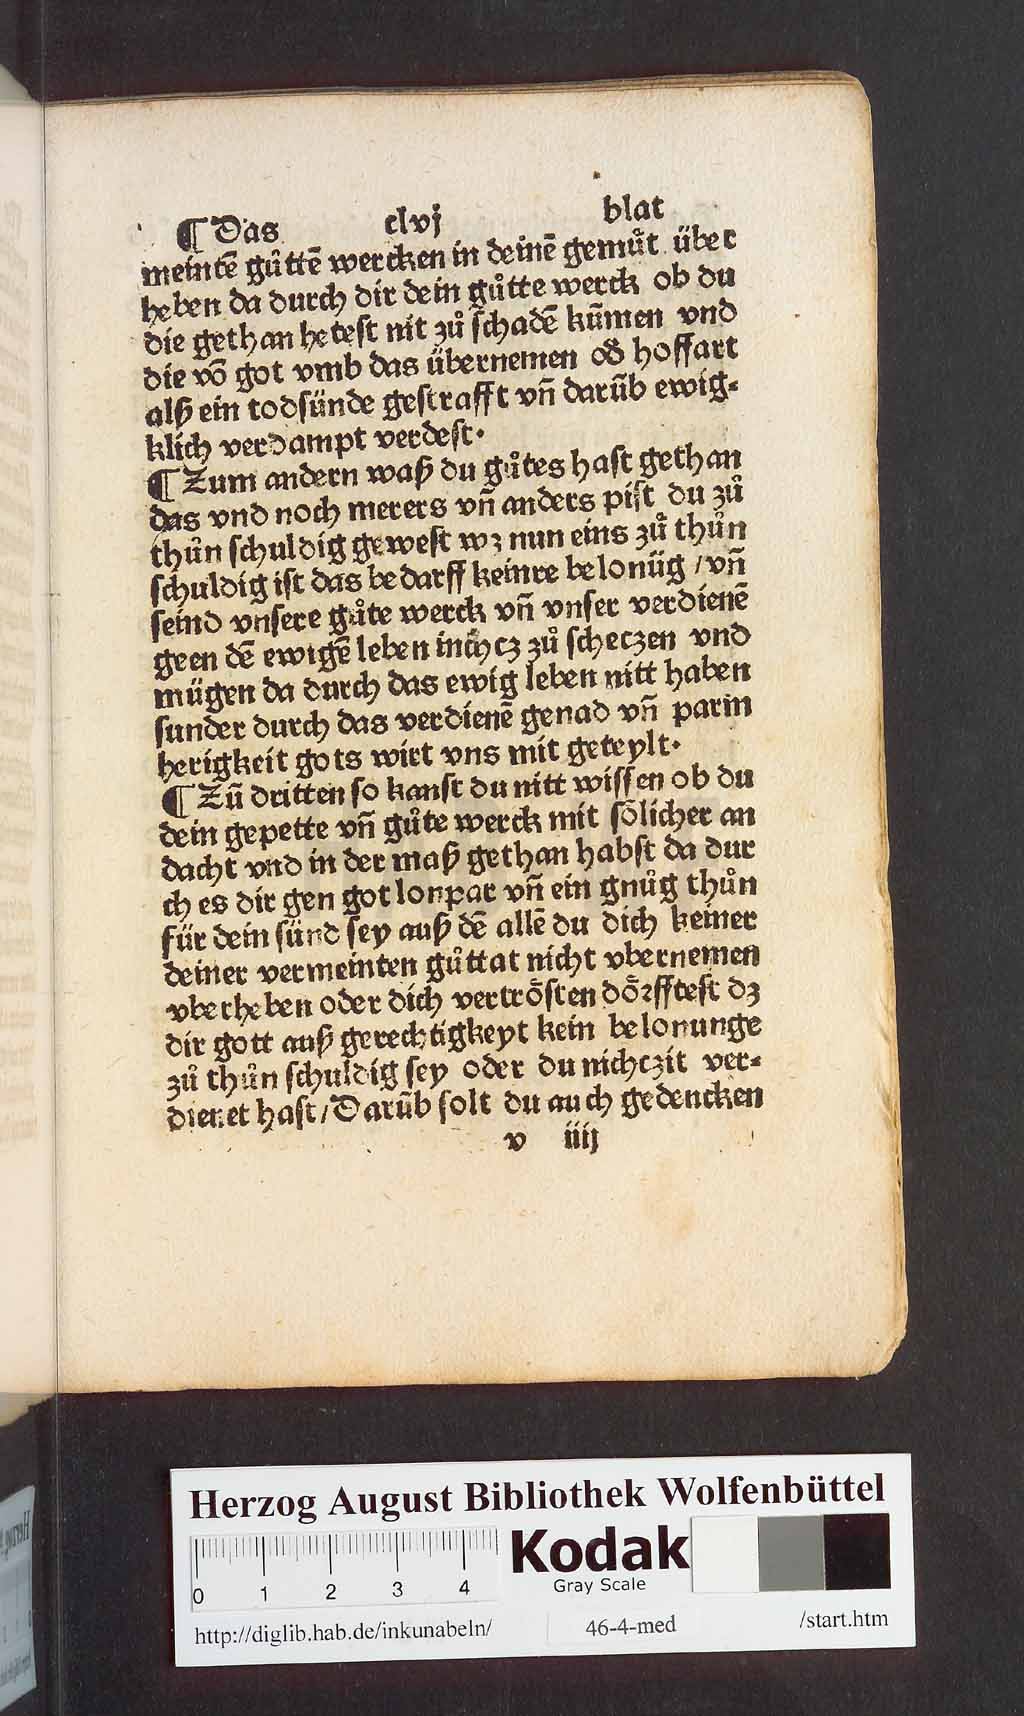 ¶ Das clvj blat
meintē gůttē wercken in deinē gemůt über
heben da durch dir dein gůtte werck ob du
die gethan hetest nit zů schadē kūmen vnd
die vō got vmb das übernemen od̄ hoffart
alß ein todsünde gestrafft vn̄ darūb ewig⸗
klich verdampt verdest.
¶ Zum andern waß du gůtes hast gethan
das vnd noch merers vn̄ anders pist du zů
thůn schuldig gewest wz nun eins zů thůn
schuldig ist das bedarff keinre belonūg / vn̄
seind vnsere gůte werck vn̄ vnser verdienē
geen dē ewigē leben inchcz zů scheczen vnd
mügen da durch das ewig leben nitt haben
sunder durch das verdienē genad vn̄ parm
herigkeit gots wirt vns mit geteylt.
¶ Zū dritten so kanst du nitt wissen ob du
dein gepette vn̄ gůte werck mit sölicher an
dacht vnd in der maß gethan habst da dur
ch es dir gen got lonpar vn̄ ein gnůg thůn
für dein sünd sey auß dē allē du dich keiner
deiner vermeinten gůttat nicht vbernemen
vberheben oder dich vertrösten dörfftest dz
dir gott auß gerechtigkeyt kein belonunge
zů thůn schuldig sey oder du nichczit ver⸗
dienet hast / Darūb solt du auch gedencken
v iiij
Herzog August Bibliothek Wolfenbüttel
0 1 2 3 4
Kodak
Gray Scale
http://diglib.hab.de/inkunabeln/ 46-4-med /start.htm